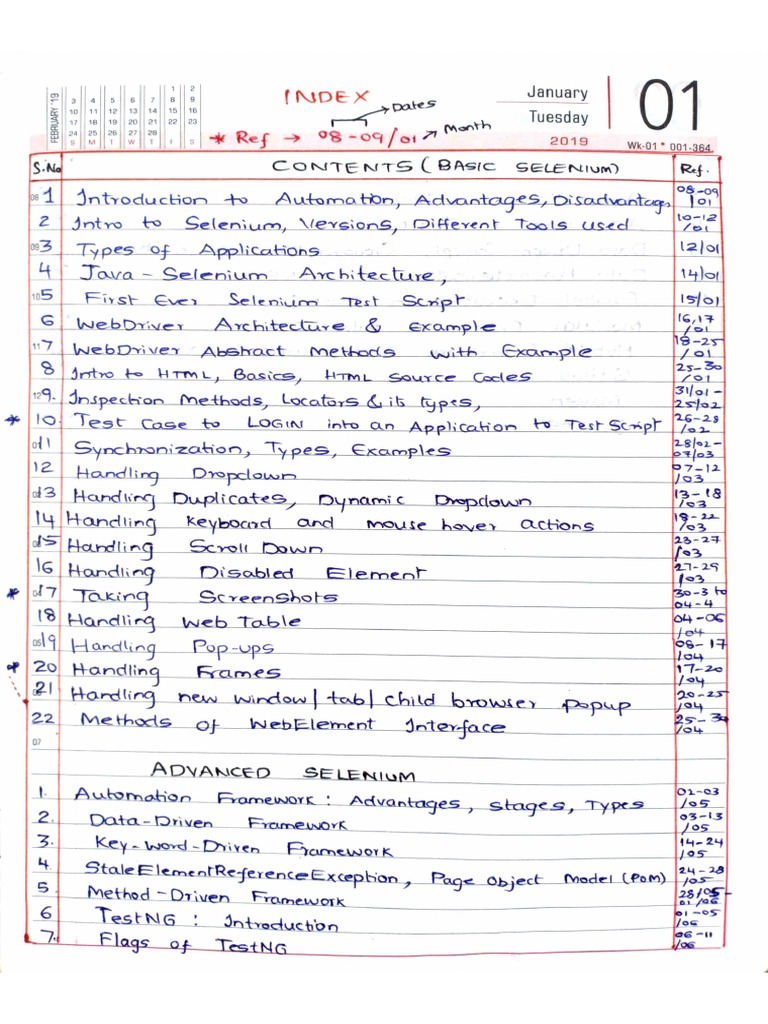 FEBRUARY '19
1 2
3 4 5 6 7 8 9
10 11 12 13 14 15 16
17 18 19 20 21 22 23
24 25 26 27 28
S M T W T F S
INDEX
Dates
* Ref → 08-09/01 → Month
January
Tuesday
2019
01
Wk-01 * 001-364
S.No CONTENTS (BASIC SELENIUM) Ref.
08 1 Introduction to Automation, Advantages, Disadvantages 08-09/01
2 Intro to Selenium, Versions, Different Tools used 10-12/01
09 3 Types of Applications 12/01
4 Java - Selenium Architecture, 14/01
10 5 First Ever Selenium Test Script 15/01
6 WebDriver Architecture & Example 16,17/01
11 7 WebDriver Abstract Methods with Example 18-25/01
8 Intro to HTML, Basics, HTML Source Codes 25-30/01
12 9. Inspection Methods, Locators & its types, 31/01-25/02
* 10. Test Case to LOGIN into an Application to Test Script 26-28/02
01 11 Synchronization, Types, Examples 28/02-07/03
12 Handling Dropdown 07-12/03
13 Handling Duplicates, Dynamic Dropdown 13-18/03
14 Handling Keyboard and mouse hover actions 18-22/03
15 Handling Scroll Down 23-27/03
16 Handling Disabled Element 27-29/03
* 17 Taking Screenshots 30-3 to 04-4
18 Handling Web Table 04-06/04
05 19 Handling Pop-ups 08-17/04
* 20 Handling Frames 17-20/04
21 Handling new window/tab/child browser popup 20-25/04
22 Methods of WebElement Interface 25-30/04
07
ADVANCED SELENIUM
1. Automation Framework: Advantages, stages, Types 02-03/05
2. Data-Driven Framework 03-13/05
3. Key-word-Driven Framework 14-24/05
4. StaleElementReferenceException, Page Object Model (POM) 24-28/05
5. Method-Driven Framework 28/05-01/06
6 TestNG: Introduction 01-05/06
7. Flags of TestNG 06-11/06